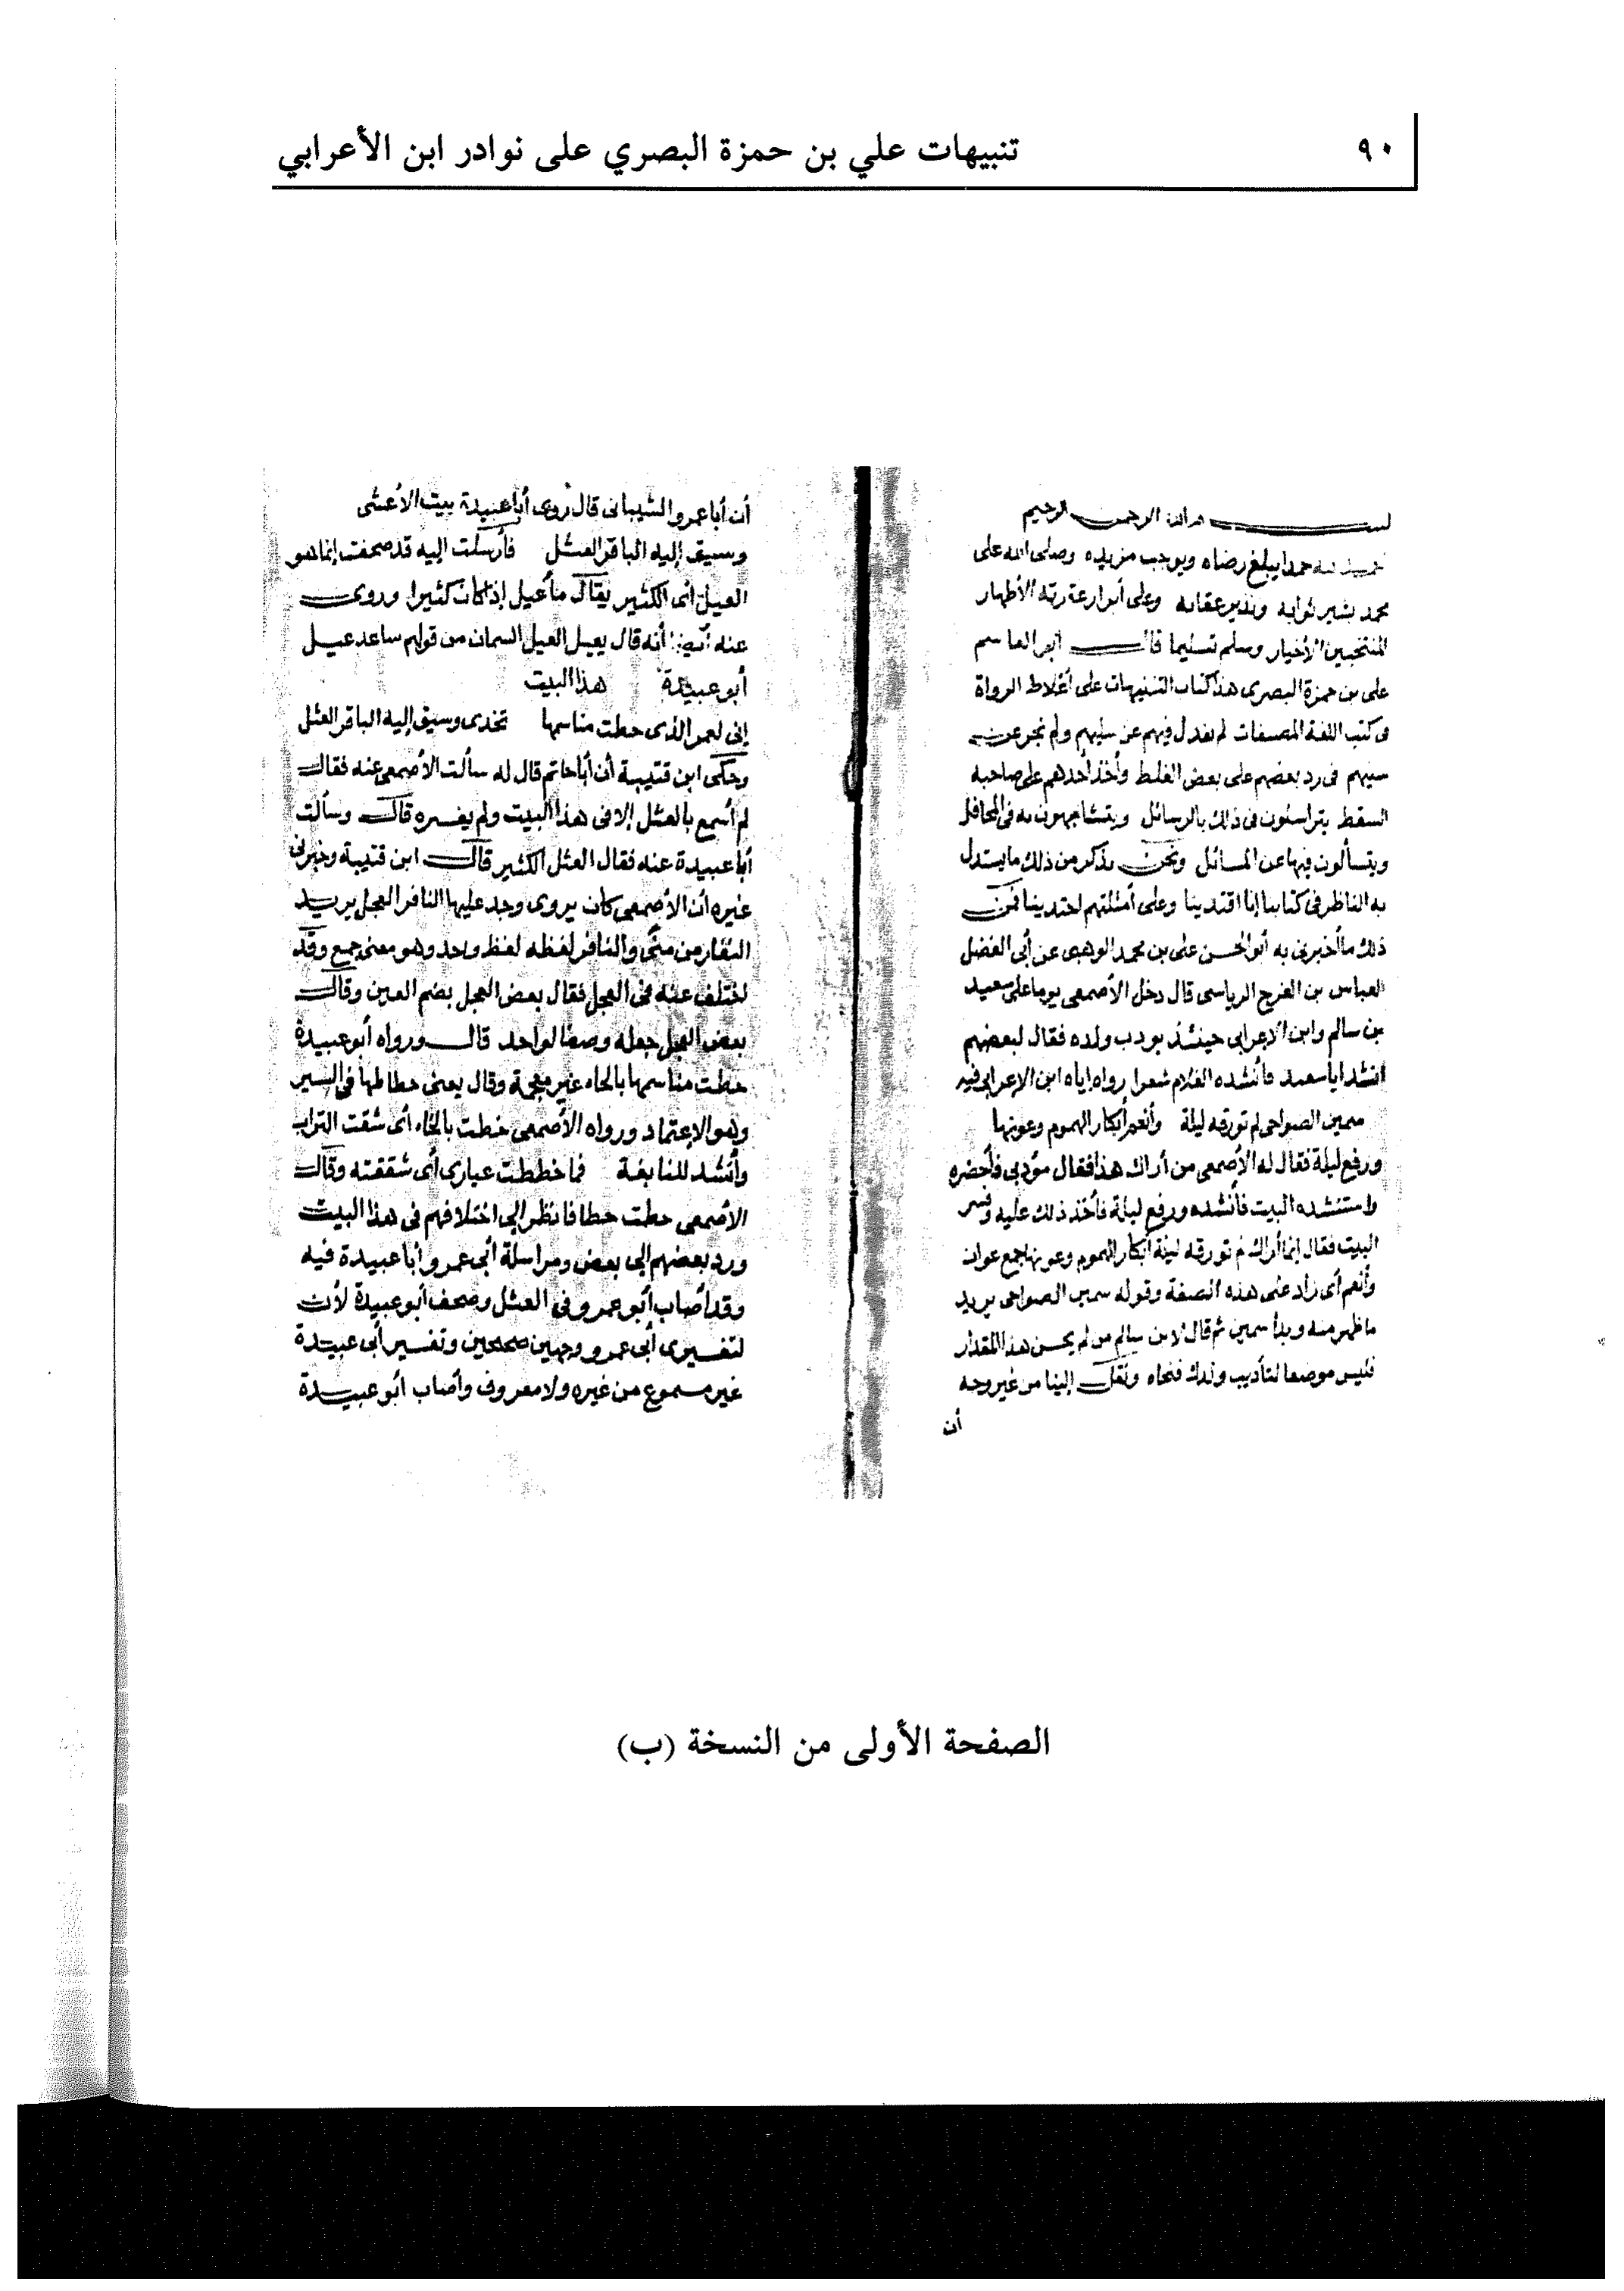 ٩٠
تنبيهات علي بن حمزة البصري على نوادر ابن الأعرابي
بسم الله الرحمن الرحيم
لله حمدا يبلغ رضاه ويوجب مزيده وصلى الله على
محمد بشير ثوابه ونذير عقابه وعلى أبرار عترته الأطهار
المنتجبين الأخيار وسلم تسليما قال أبو القاسم
على بن حمزة البصرى هذا كتاب التنبيهات على أغلاط الرواة
فى كتب اللغة المصنفات لم نعدل فيهم عن سبيلهم ولم نجر عن
سننهم فى رد بعضهم على بعض الغلط وأخذ أحدهم على صاحبه
السقط يتراسلون فى ذلك بالرسائل ويتشاجهون به فى المحافل
ويتسألون فيها عن المسائل ونحن نذكر من ذلك ما يستدل
به الناظر فى كتابنا إنا اقتدينا وعلى أمثلتهم احتذينا فمن
ذلك ما أخبرنى به أبو الحسن على بن محمد الوهبى عن أبى الفضل
العباس بن الفرج الرياسى قال دخل الأصمعى يوما على سعيد
بن سالم وابن الإعرابى حينئذ يودب ولده فقال لبعضهم
انشد أبا سعيد فأنشده الغلام شعرا رواه إياه ابن الإعرابى فيه
سمين الضواحى لم تورقه ليلة وأنعم أبكار الهموم وعونها
ورفع ليلة فقال له الأصمعى من أراك هذا فقال مؤدبى فأحضره
واستنشده البيت فأنشده ورفع ليلة فأخذ ذلك عليه وفسر
البيت فقال إنما أراك لم تورقه ليلة أبكار الهموم وعونها جمع عوان
وأنعم أى زاد على هذه الصفة وقوله سمين الضواحى يريد
ما ظهر منه وبدأ سمين ثم قال لابن سالم من لم يحسن هذا المقدار
فليس موضعا لتأديب ولدك فنحاه ونقل إلينا من غير وجه
أن
أن أبا عمرو الشيبانى قال روى أبا عبيدة بيت الأعشى
وسيق إليه الباقر العثل فأرسلت إليه قد صحفت إنما هو
الغيل أى الكثير يقال ماء غيل إذا كان كثيرا وروى
عنه أيضا أنه قال يعيل الغيل السمان من قولهم ساعد غيل
أبو عبيدة هذا البيت
إنى لعمر الذى حطت مناسمها تخدى وسيق إليه الباقر العثل
وحكى ابن قتيبة أن أبا حاتم قال له سألت الأصمعى عنه فقال
لم أسمع بالعثل إلا فى هذا البيت ولم يفسره قال وسألت
أبا عبيدة عنه فقال العثل الكثير قال ابن قتيبة وخبرنى
غيره أن الأصمعى كان يروى وجد عليها النافر العجل يريد
النفار من منًى والنافر لفظه لفظ واحد وهو معنى جمع وقد
اختلف عنه فى العجل فقال بعض العجل بضم العين وقال
بعض العجل جعله وصفا لواحد قال ورواه أبو عبيدة
حطت مناسمها بالحاء غير معجمة وقال يعنى حطاطها فى السير
وهو الإعتماد ورواه الأصمعى خطت بالخاء أى شقت التراب
وأنشد للنابغة فما خططت غبارى أى شققته وقال
الأصمعى حطت حطا فانظر إلى اختلافهم فى هذا البيت
ورد بعضهم إلى بعض ومراسلة أبى عمرو أبا عبيدة فيه
وقد أصاب أبو عمرو فى العثل وصحف أبو عبيدة لأن
لتفسيرى أبى عمرو وجهين صحيحين وتفسير أبى عبيدة
غير مسموع من غيره ولا معروف وأصاب أبو عبيدة
الصفحة الأولى من النسخة (ب)